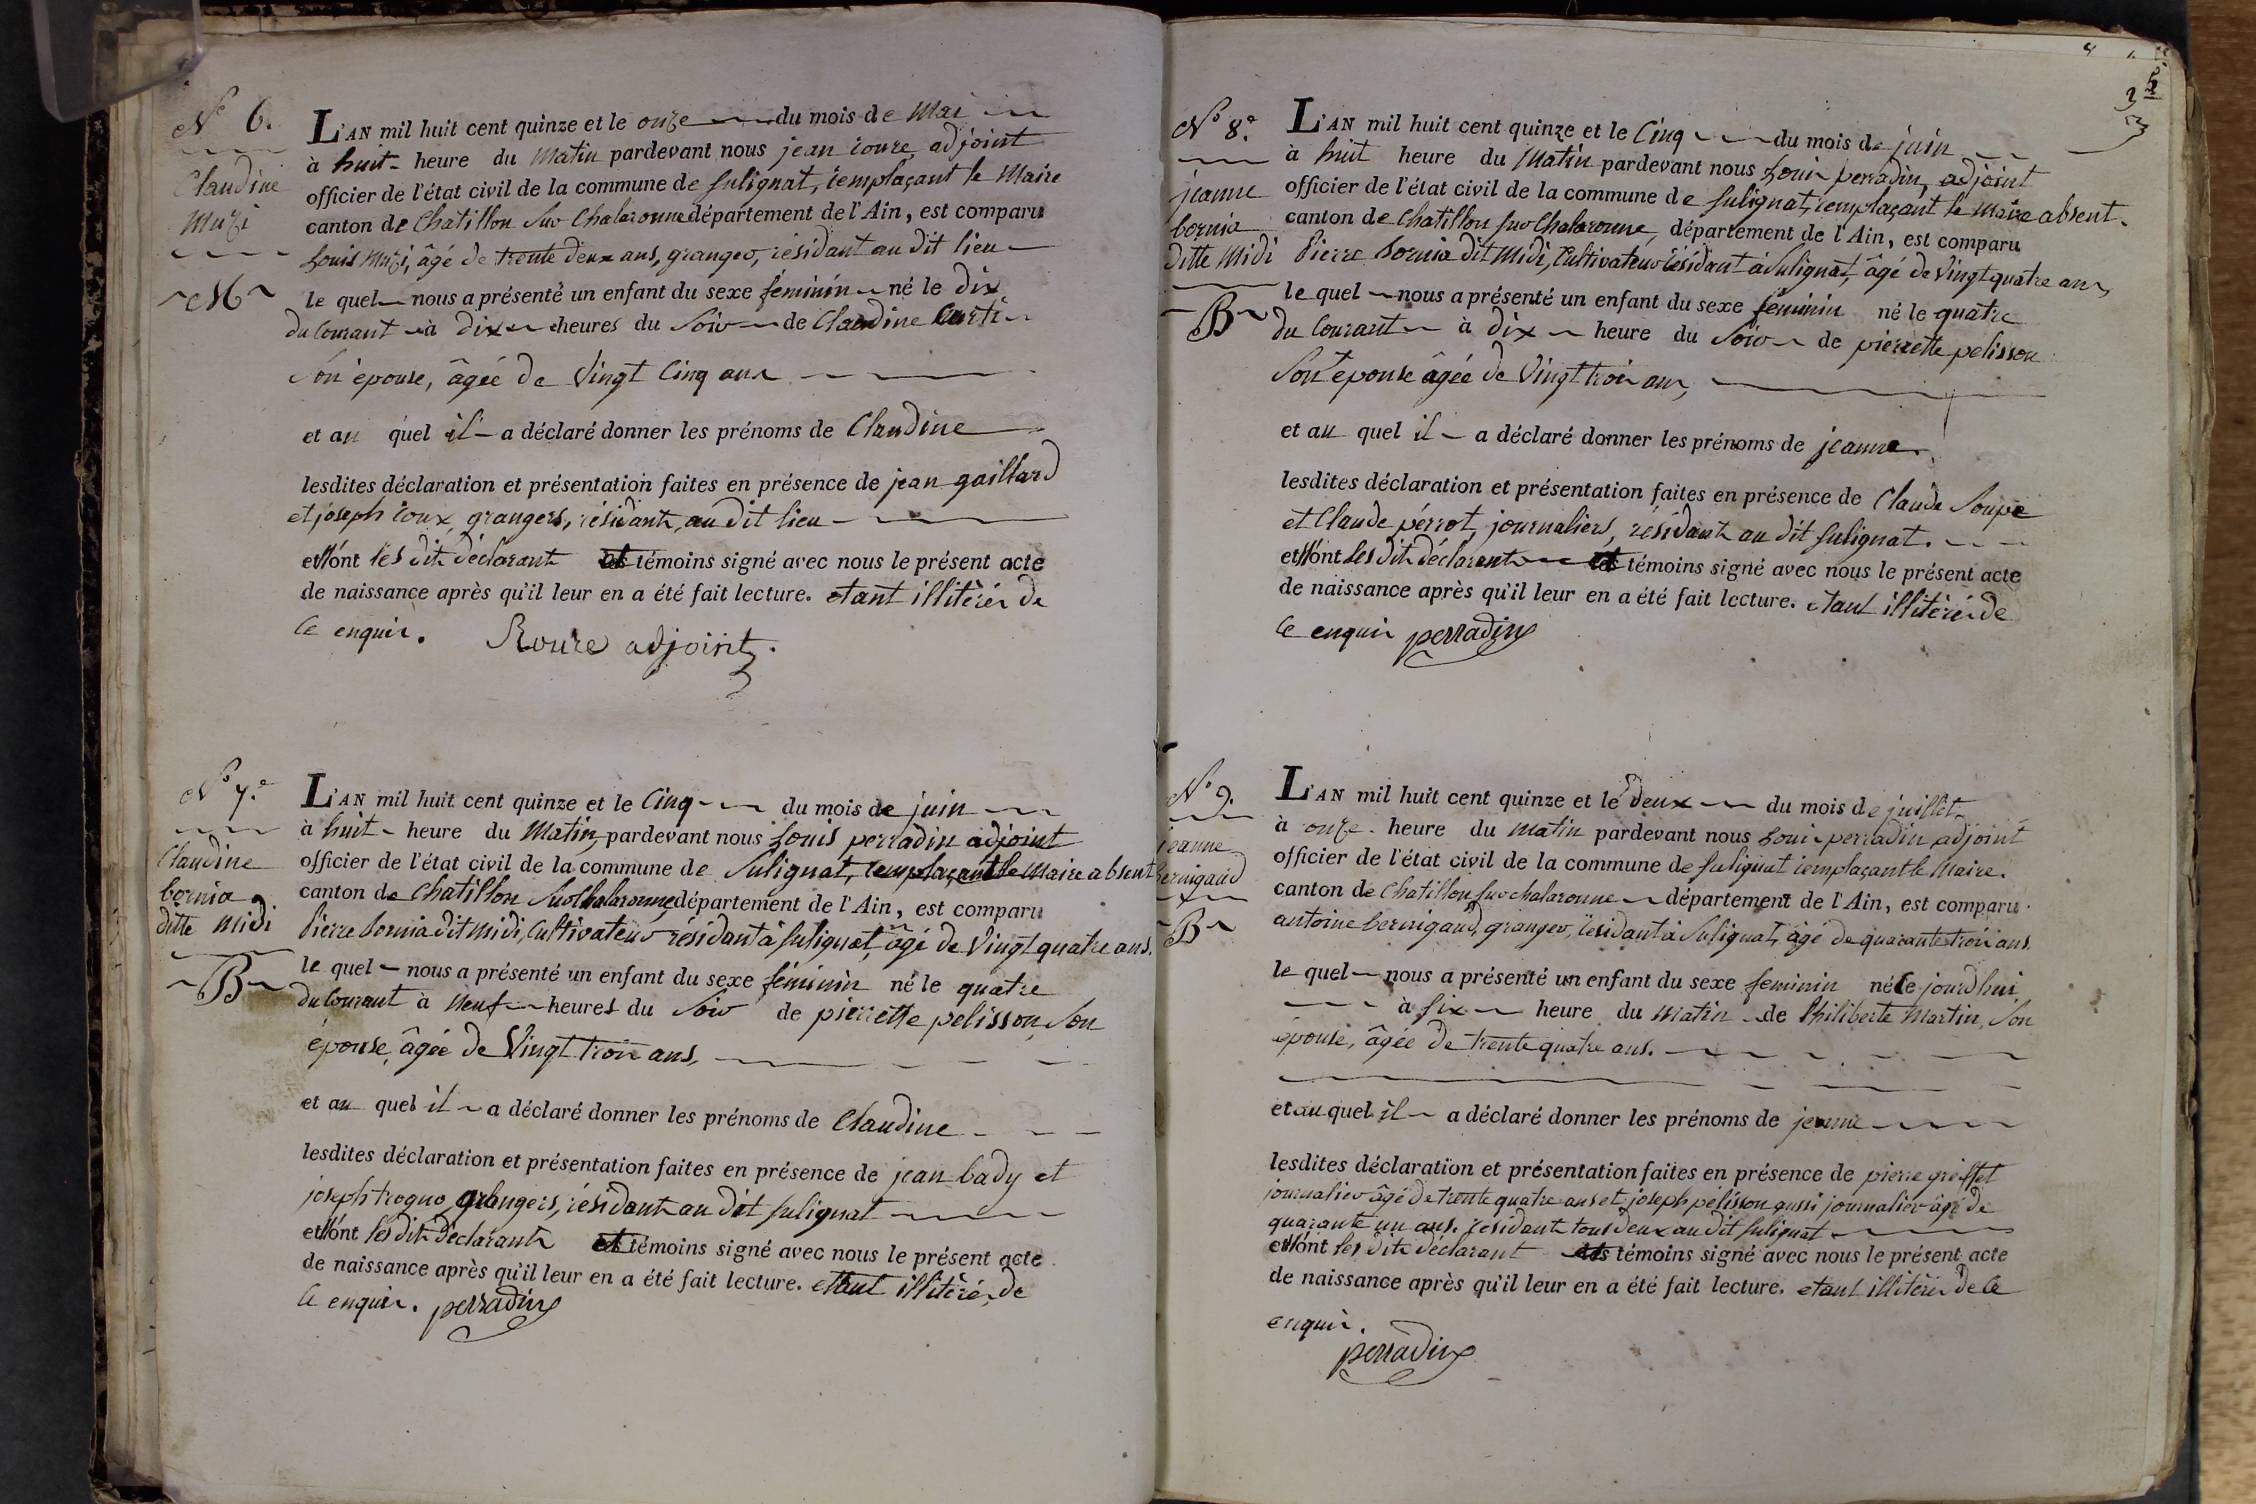 N.º 6.
Claudine
Muzi
M
L'AN mil huit cent quinze et le onze du mois de Mai
à huit heure du Matin pardevant nous jean roure adjoint
officier de l'état civil de la commune de sulignat, remplaçant le Maire
canton de Chatillon sur Chalaronne département de l'Ain, est comparu
Louis Muzi, âgé de trente deux ans, granger, résidant au dit lieu
le quel nous a présenté un enfant du sexe féminin né le dix
du Courant à dix heures du Soir de Claudine Curti
Son épouse, âgée de Vingt Cinq ans
et au quel il a déclaré donner les prénoms de Claudine
lesdites déclaration et présentation faites en présence de jean gaillard
et joseph roux, grangers, résidants au dit lieu
et n'ont les dits déclarant et témoins signé avec nous le présent acte
de naissance après qu'il leur en a été fait lecture. etant illitérés de
Ce enquis. Roure adjoint.
N.º 7.e
Claudine
bornia
ditte Midi
B
L'AN mil huit cent quinze et le Cinq du mois de juin
à huit heure du Matin, pardevant nous Louis perradin adjoint
officier de l'état civil de la commune de Sulignat, remplaçant le Maire absent
canton de Chatillon sur Chalaronne, département de l'Ain, est comparu
Pierre bornia dit Midi, Cultivateur résidant à Sulignat, âgé de Vingt quatre ans.
le quel nous a présenté un enfant du sexe féminin né le quatre
du Courant à Neuf heures du Soir de pierrette pelisson, Son
épouse, âgée de Vingt trois ans,
et au quel il a déclaré donner les prénoms de Claudine
lesdites déclaration et présentation faites en présence de jean bady et
joseph grangers, résidants au dit sulignat
et n'ont les dits déclarants et témoins signé avec nous le présent acte
de naissance après qu'il leur en a été fait lecture. etant illitérés de
Ce enquis. perradin
3
N.º 8.e
jeanne
bornia
ditte Midi
B
L'AN mil huit cent quinze et le Cinq du mois de juin
à huit heure du Matin pardevant nous Louis perradin, adjoint
officier de l'état civil de la commune de sulignat, remplaçant le Maire absent.
canton de Chatillon sur Chalaronne, département de l'Ain, est comparu
Pierre bornia dit Midi, Cultivateur résidant à Sulignat, âgé de Vingt quatre ans,
le quel nous a présenté un enfant du sexe féminin né le quatre
du Courant à dix heure du Soir de pierrette pelisson
Son épouse âgée de Vingt trois ans,
et au quel il a déclaré donner les prénoms de jeanne
lesdites déclaration et présentation faites en présence de Claude Soupe
et Claude pérrot, journaliers, résidants au dit sulignat.
et n'ont les dits déclarants et témoins signé avec nous le présent acte
de naissance après qu'il leur en a été fait lecture. etant illitérés de
Ce enquis perradin
N.º 9.
jeanne
bernigaud
B
L'AN mil huit cent quinze et le deux du mois de juillet
à onze heure du Matin pardevant nous Louis perradin, adjoint
officier de l'état civil de la commune de sulignat remplaçant le Maire.
canton de Chatillon sur chalaronne département de l'Ain, est comparu
antoine bernigaud, granger, résidant à Sulignat, âgé de quarante trois ans.
le quel nous a présenté un enfant du sexe feminin né Ce jourd'hui
à six heure du Matin de Philiberte Martin, Son
épouse, âgée de trente quatre ans.
et au quel il a déclaré donner les prénoms de jeanne
lesdites déclaration et présentation faites en présence de pierre greffet
journalier âgé de trente quatre ans et joseph pélisson aussi journalier âgé de
quarante un ans. résidant tous deux au dit sulignat
et n'ont les dits déclarant et témoins signé avec nous le présent acte
de naissance après qu'il leur en a été fait lecture. etant illitérés de Ce
enquis.
perradin